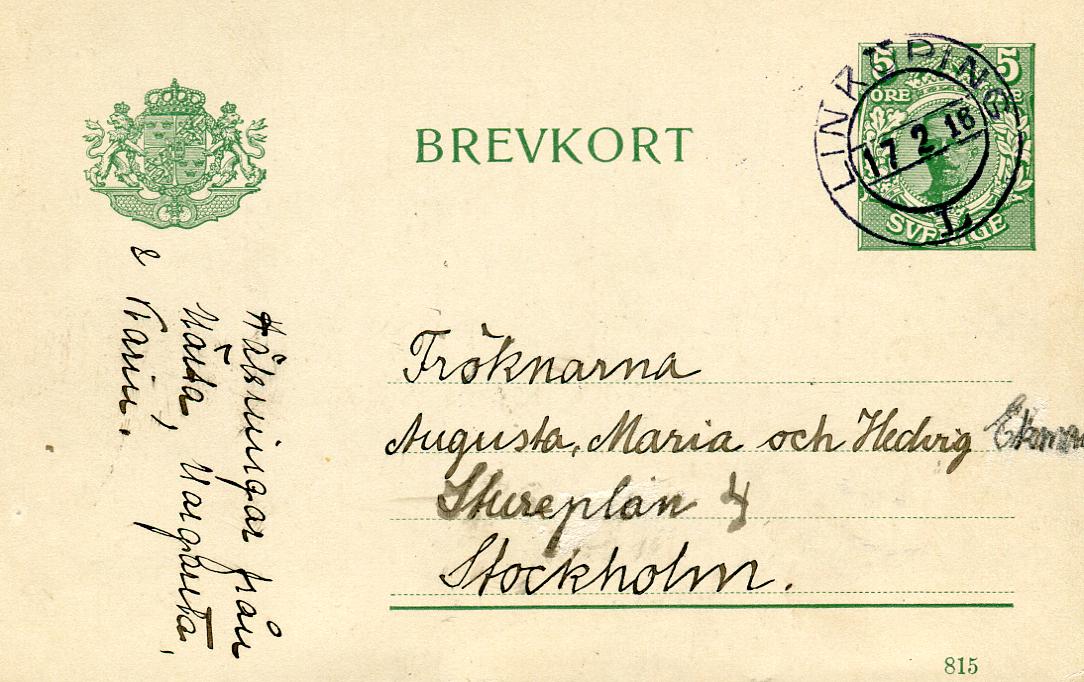 BREVKORT
5 5
ÖRE
SVERIGE
LINKÖPING
17 2 18
L
Fröknarna
Augusta, Maria och Hedvig
Stureplan 4
Stockholm.
Hälsningar från
Märta, Margareta,
& Karin.
815